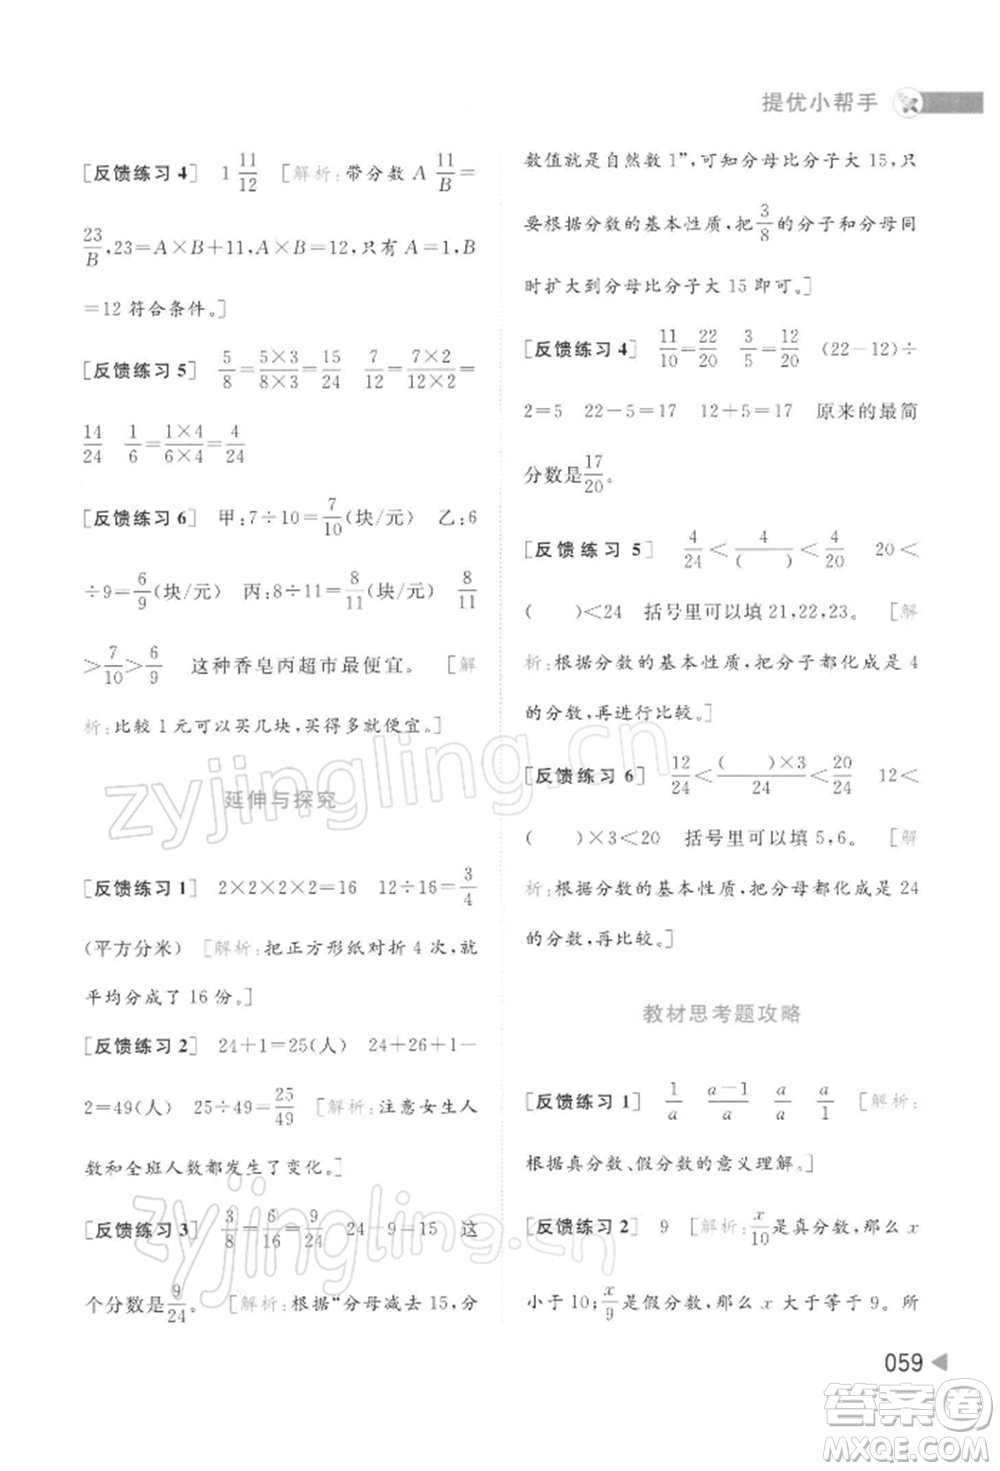 提优小帮手
[反馈练习 4] 1 11/12 [解析:带分数 A 11/B =
23/B,23=A×B+11,A×B=12,只有 A=1,B
=12 符合条件。]
[反馈练习 5] 5/8=5×3/8×3=15/24 7/12=7×2/12×2=
14/24 1/6=1×4/6×4=4/24
[反馈练习 6] 甲:7÷10=7/10(块/元) 乙:6
÷9=6/9(块/元) 丙:8÷11=8/11(块/元) 8/11
>7/10>6/9 这种香皂丙超市最便宜。 [解
析:比较 1 元可以买几块,买得多就便宜。]
延伸与探究
[反馈练习 1] 2×2×2×2=16 12÷16=3/4
(平方分米) [解析:把正方形纸对折 4 次,就
平均分成了 16 份。]
[反馈练习 2] 24+1=25(人) 24+26+1-
2=49(人) 25÷49=25/49 [解析:注意女生人
数和全班人数都发生了变化。]
[反馈练习 3] 3/8=6/16=9/24 24-9-15 这
个分数是9/24。 [解析:根据“分母减去 15,分
数值就是自然数 1”,可知分母比分子大 15,只
要根据分数的基本性质,把3/8的分子和分母同
时扩大到分母比分子大 15 即可。]
[反馈练习 4] 11/10=22/20 3/5=12/20 (22-12)÷
2=5 22-5=17 12+5=17 原来的最简
分数是17/20。
[反馈练习 5] 4/24<4/( )<4/20 20<
( )<24 括号里可以填 21,22,23。 [解
析:根据分数的基本性质,把分子都化成是 4
的分数,再进行比较。]
[反馈练习 6] 12/24<( )×3/24<20/24 12<
( )×3<20 括号里可以填 5,6。 [解
析:根据分数的基本性质,把分母都化成是 24
的分数,再比较。]
教材思考题攻略
[反馈练习 1] 1/a a-1/a a/a a/1 [解析:
根据真分数、假分数的意义理解。]
[反馈练习 2] 9 [解析:x/10是真分数,那么 x
小于 10;x/9是假分数,那么 x 大于等于 9。所
059
zyjingling.cn
zyjingling.cn
答案圈
MXQE.COM